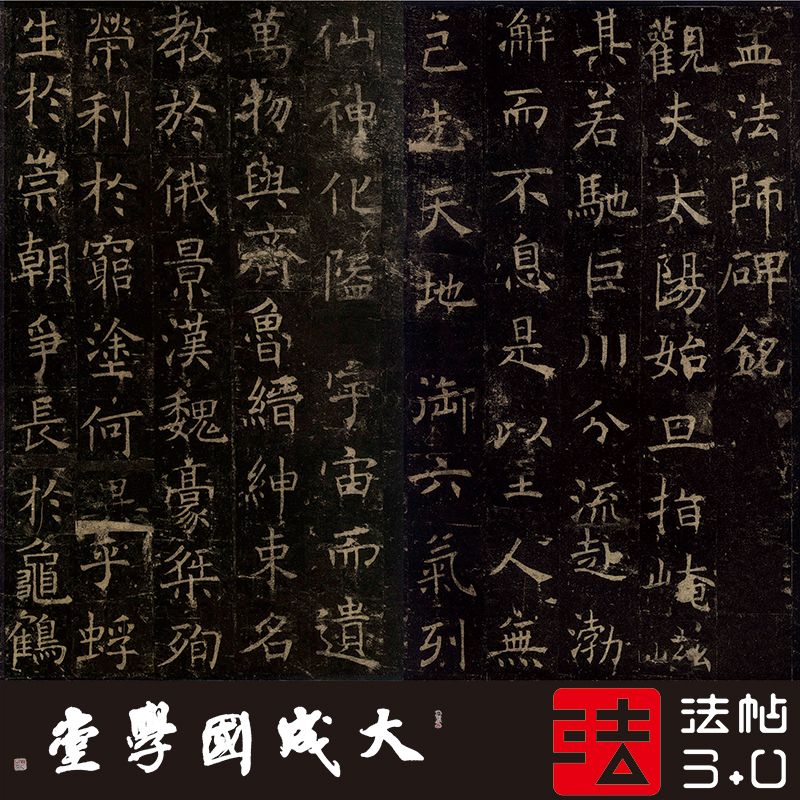 孟法師碑銘
觀夫太陽始旦指崦嵫
其若馳巨川分流赴渤
澥而不息是以至人無
己先天地御六氣列
仙神化隘宇宙而遺
萬物與齊魯縉紳束名
教於俄景漢魏豪桀殉
榮利於窮塗何異乎蜉
生於崇朝爭長於龜鶴
大成國學堂
法
法帖
3.0